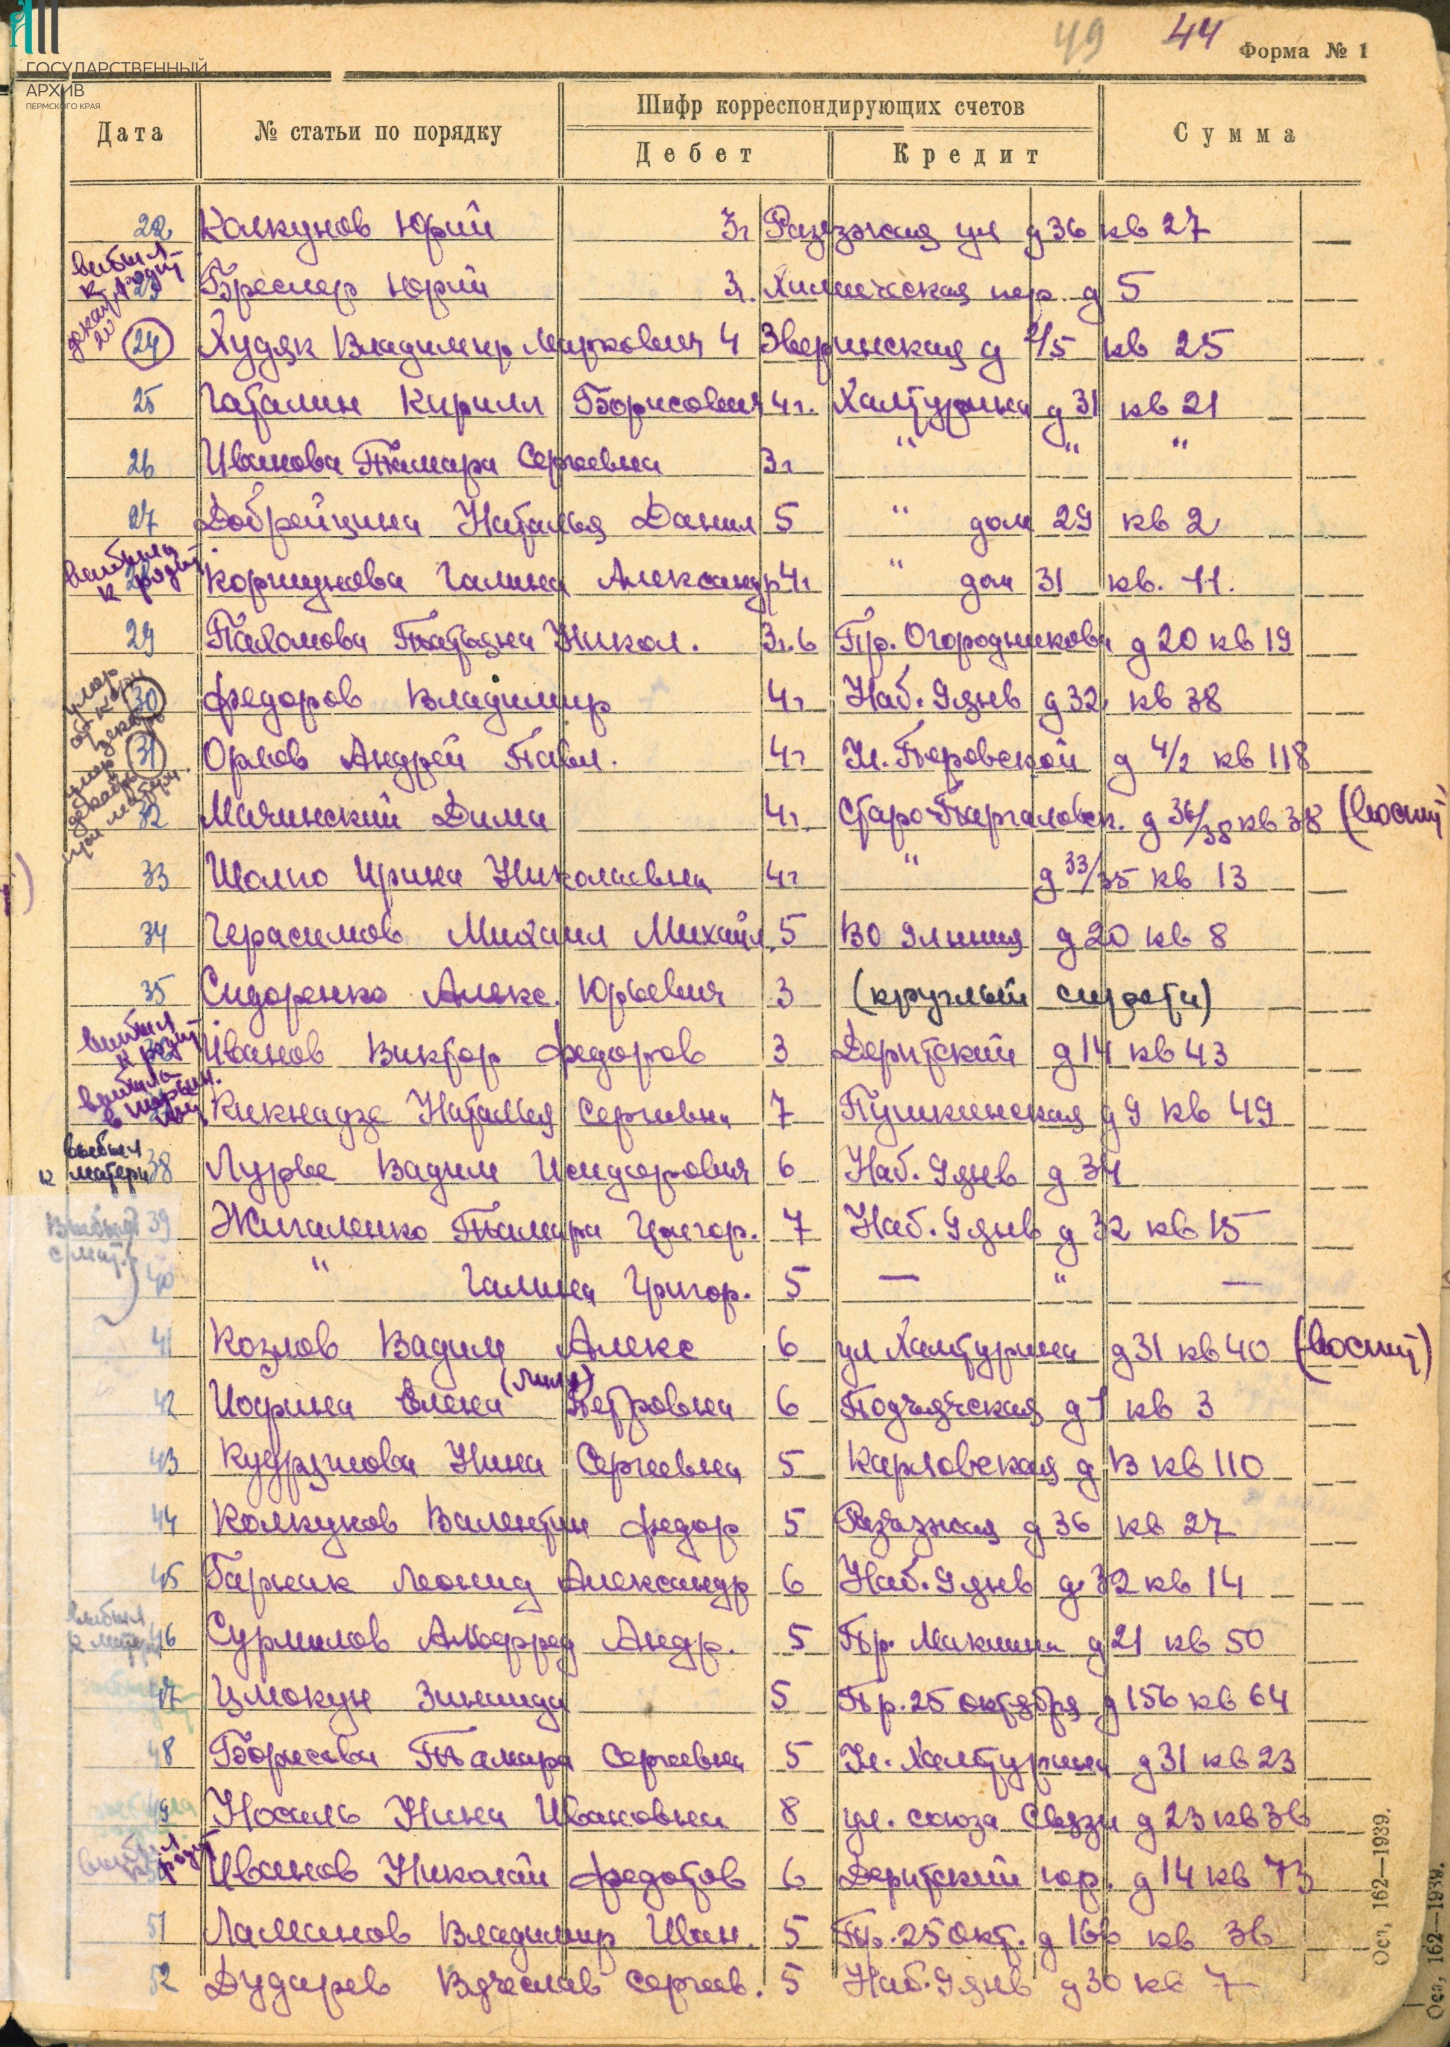 ГОСУДАРСТВЕННЫЙ
АРХИВ
ПЕРМСКОГО КРАЯ
49 44 Форма № 1
Дата № статьи по порядку Шифр корреспондирующих счетов Сумма
Дебет Кредит
22 Колкунов Юрий 3г Разъезжая ул д 36 кв 27
выбыл к родит. 23 Бреслер Юрий 3г. Химическая пер. д 5
декабрь 24 Худяк Владимир Маркович 4 Зверинская д 2/5 кв 25
25 Гаталин Кирилл Борисович 4г. Халтурина д 31 кв 21
26 Иванова Тамара Сергеевна 3г " " "
27 Добрейцина Наталья Данил 5 " дом 29 кв 2
выбыла к родит. 28 Коршунова Галина Александр 4г " дом 31 кв. 11.
29 Пахомова Татьяна Никол. 3г.6 Пр. Огородникова д 20 кв 19
умер 30 Федоров Владимир 4г Наб. 9 янв д 32 кв 38
умер декабрь 31 Орлов Андрей Павл. 4г Ул. Перовской д 4/2 кв 118
32 Мачинский Дима 4г. Старо-Парголовск. д 36/38 кв 38 (воспит
33 Шолпо Ирина Николаевна 4г " д 33/35 кв 13
34 Герасимов Михаил Михайл. 5 ВО 9 линия д 20 кв 8
35 Сидоренко Алекс. Юрьевич 3 (круглый сирота)
выбыл к родит 36 Иванов Виктор Федоров 3 Дерптский д 14 кв 43
выбыла в 37 Кикнадзе Наталья Сергеевна 7 Пушкинская д 9 кв 49
выбыл к матери 38 Лурье Вадим Исидорович 6 Наб. 9 янв д 34
Выбыла с мат. 39 Жигаленко Тамара Григор. 7 Наб. 9 янв д 32 кв 15
40 " Галина Григор. 5 — " —
41 Козлов Вадим Алекс 6 ул Халтурина д 31 кв 40 (воспит)
42 Иоффина Елена (Лиля) Петровна 6 Подъяческая д 1 кв 3
43 Кудряшова Нина Сергеевна 5 Карповская д 13 кв 110
44 Колкунов Валентин Федор 5 Разъезжая д 36 кв 27
45 Гарник Леонид Александр 6 Наб. 9 янв д 32 кв 14
выбыл к матери 46 Сурмилов Альфред Андр. 5 Пр. Маклина д 21 кв 50
47 Цмокун Зинаида 5 Пр. 25 октября д 156 кв 64
48 Борисова Тамара Сергеевна 5 Ул. Халтурина д 31 кв 23
49 Носаль Нина Ивановна 8 ул. союза Связи д 23 кв 36
выбыл к родит Иванов Николай Федотов 6 Дерптский пер. д 14 кв 73
51 Ламанов Владимир Иван. 5 Пр. 25 Окт. д 166 кв 36
52 Дударев Вячеслав Сергеев. 5 Наб. 9 янв д 30 кв 7
Оса, 162—1939.
Оса, 162—1939.